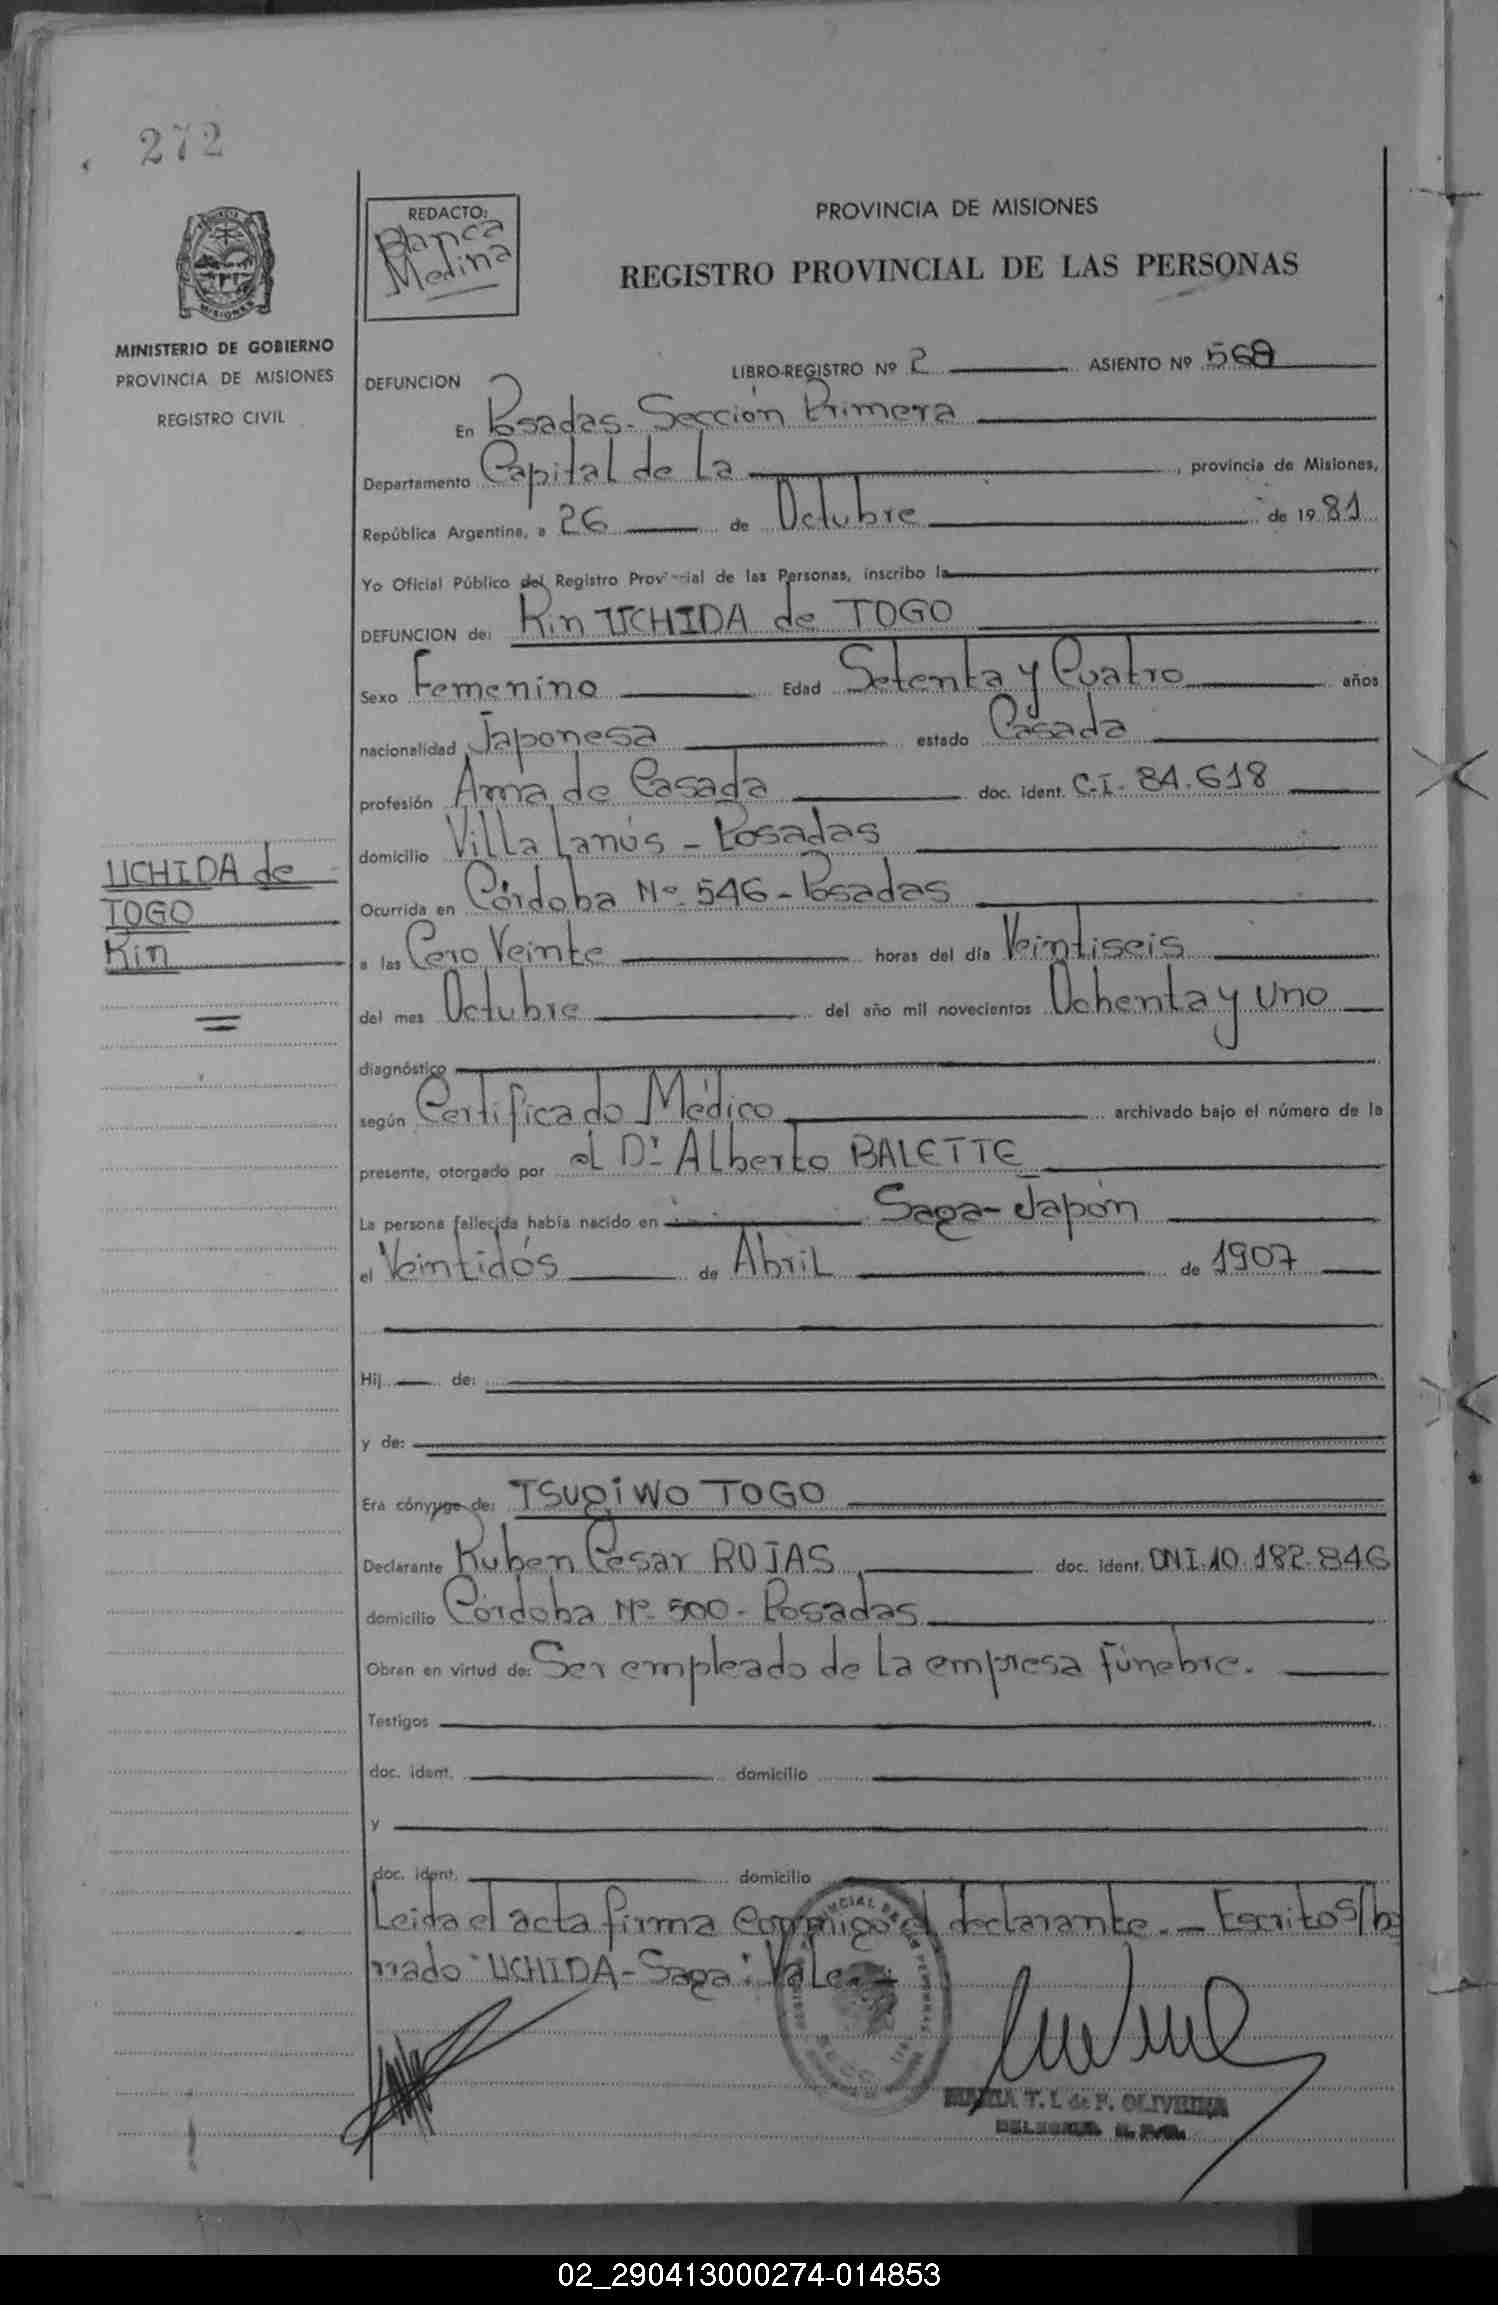 272
REDACTO:
Blanca
Medina
PROVINCIA DE MISIONES
REGISTRO PROVINCIAL DE LAS PERSONAS
MINISTERIO DE GOBIERNO
PROVINCIA DE MISIONES
REGISTRO CIVIL
DEFUNCION
LIBRO-REGISTRO Nº 2 ASIENTO Nº 568
En Posadas - Sección Primera
Departamento Capital de La , provincia de Misiones,
República Argentina, a 26 de Octubre de 1981
Yo Oficial Público del Registro Provincial de las Personas, inscribo la
DEFUNCION de: Kin UCHIDA de TOGO
Sexo Femenino Edad Setenta y Cuatro años
nacionalidad Japonesa estado Casada
profesión Ama de Casada doc. ident. C.I. 84.618
domicilio Villa Lanús - Posadas
UCHIDA de
TOGO
Kin
Ocurrida en Córdoba Nº 546 - Posadas
a las Cero Veinte horas del día Veintiseis
del mes Octubre del año mil novecientos Ochenta y Uno
diagnóstico
según Certificado Médico archivado bajo el número de la
presente, otorgado por el Dr. Alberto BALETTE
La persona fallecida había nacido en Saga - Japón
el Veintidós de Abril de 1907
Hij de:
y de:
Era cónyuge de: TSUGIWO TOGO
Declarante Ruben César ROJAS doc. ident. DNI.10.182.846
domicilio Córdoba Nº 500 - Posadas
Obran en virtud de: Ser empleado de la empresa fúnebre.
Testigos
doc. ident. domicilio
y
doc. ident. domicilio
Leida el acta firma conmigo el declarante. - Escrito s/bo
rrado "UCHIDA - Saga": Vale. -
MARIA T. L. de F. OLIVEIRA
02_290413000274-014853